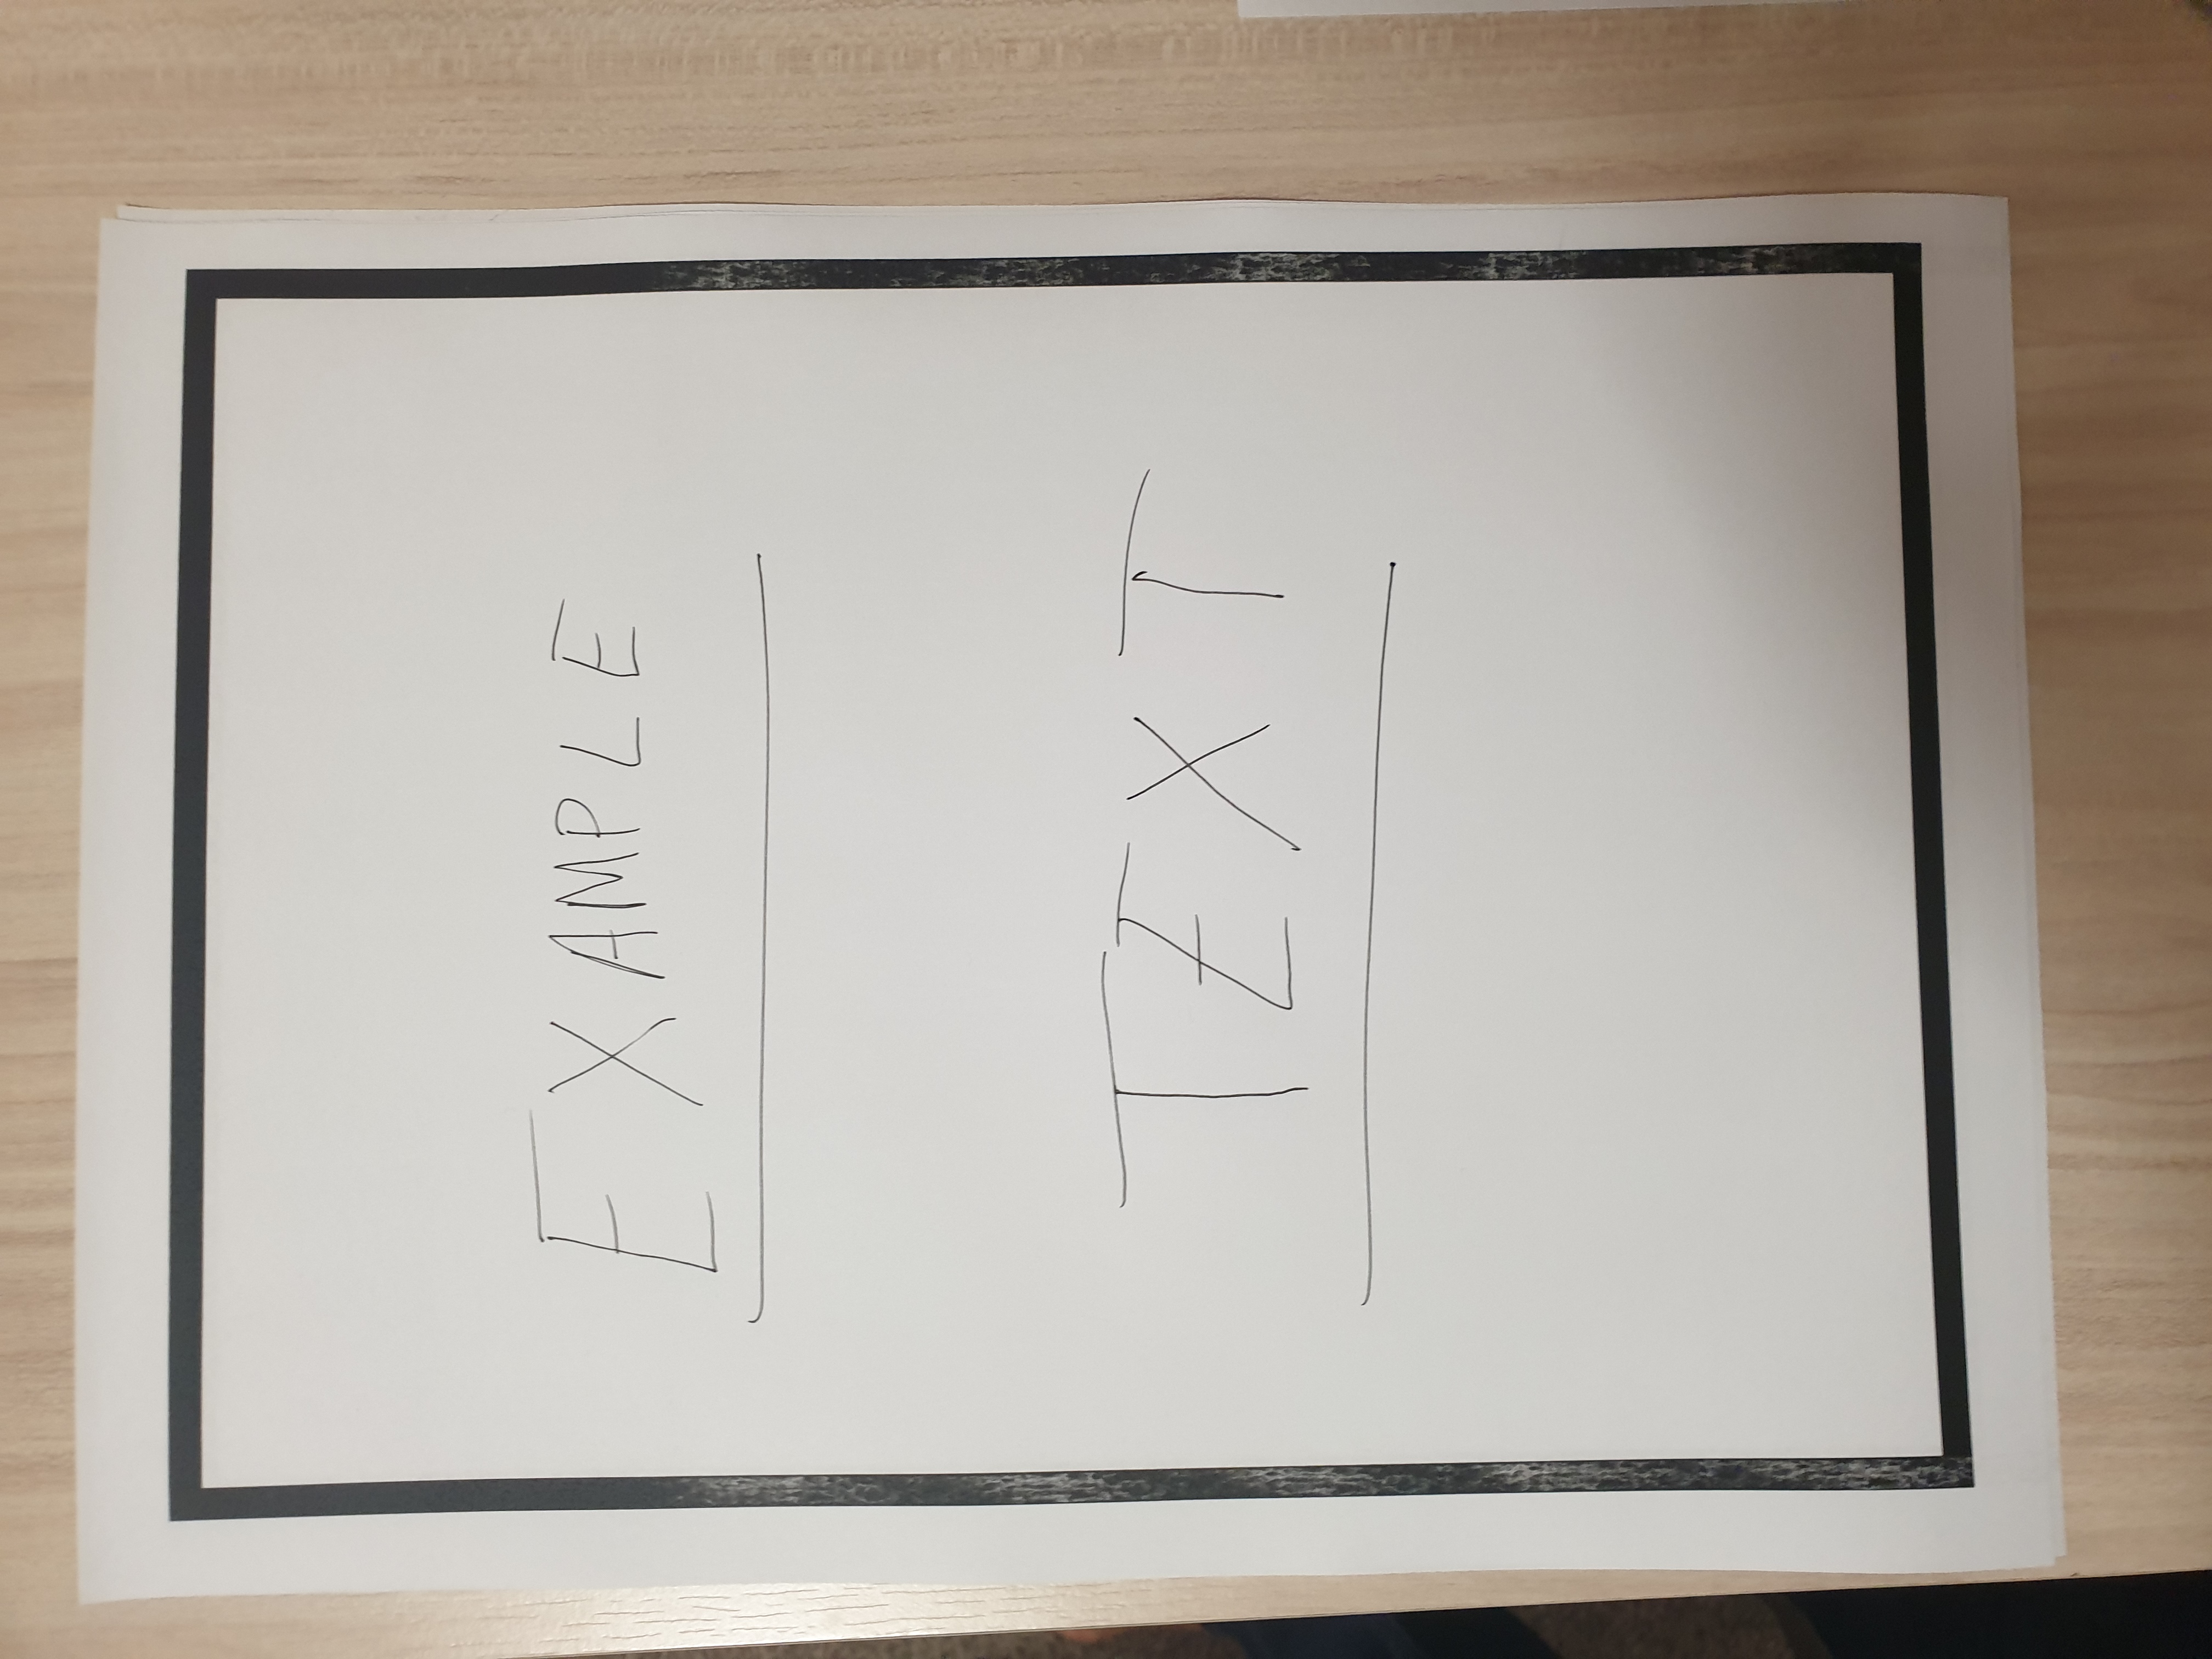 EXAMPLE
TEXT